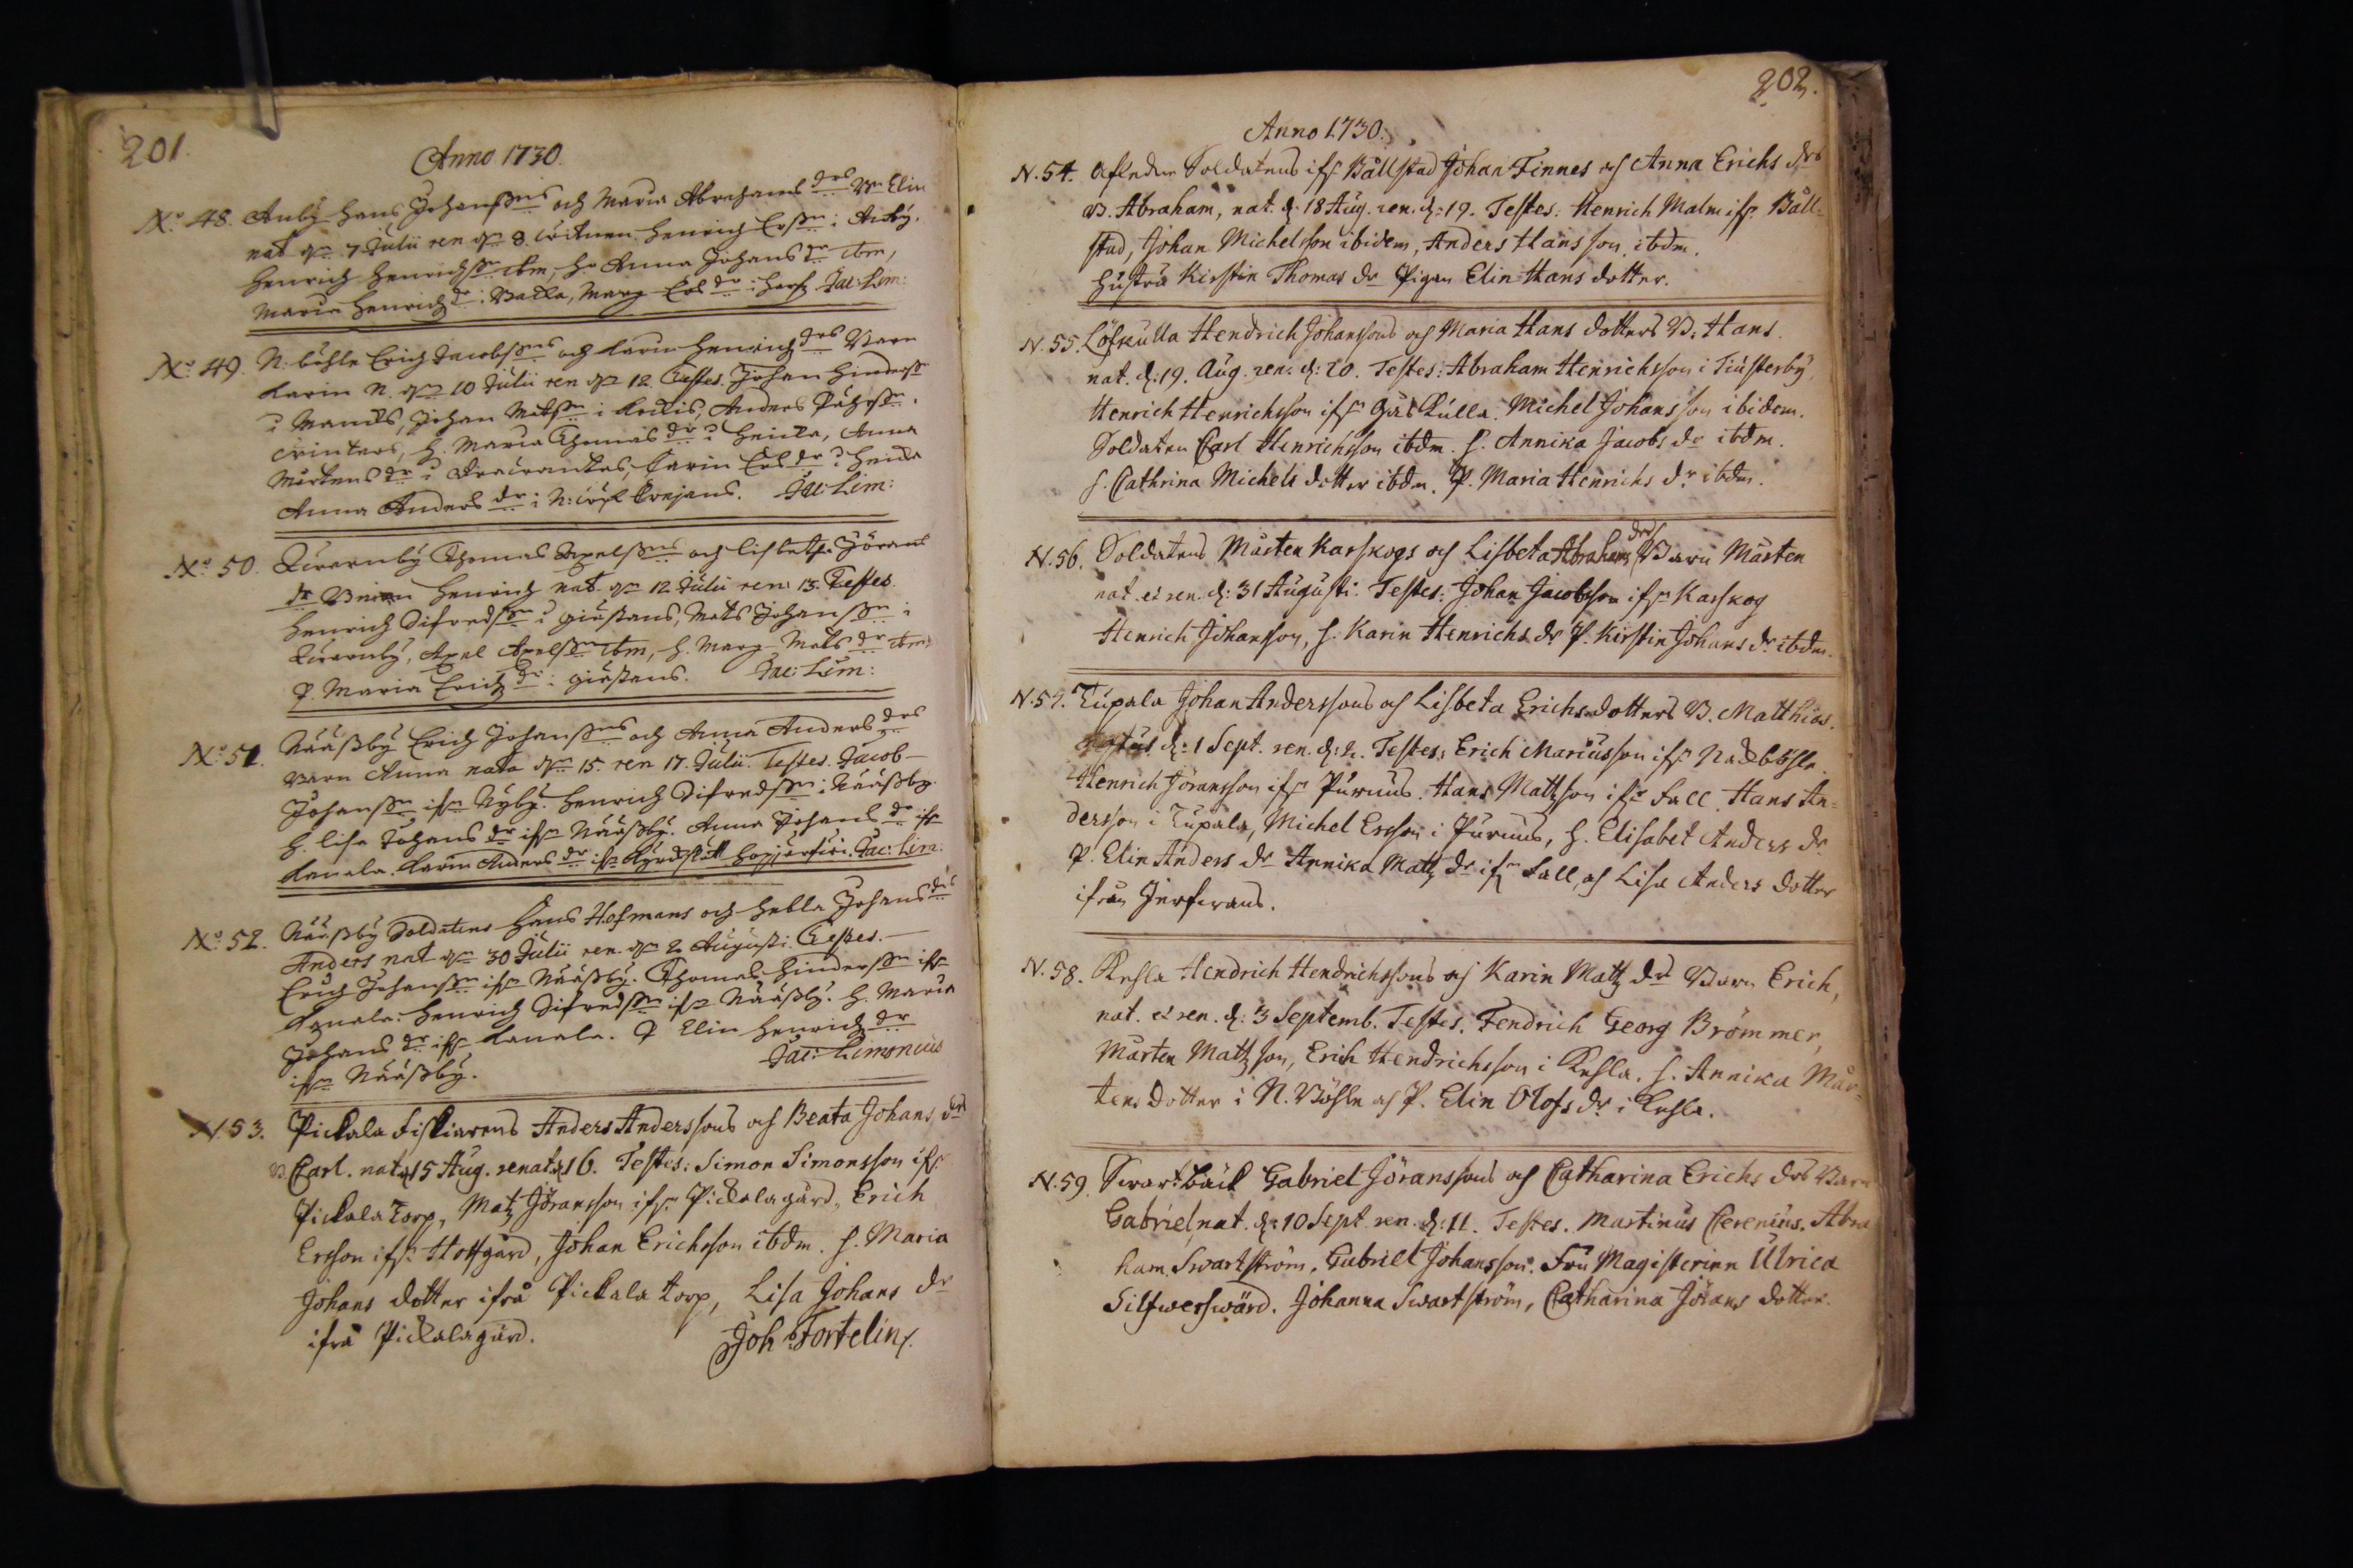 201.
Anno 1730.
No. 48. Anby Hans Johanssons och Maria Abrahams drs Bn Elin
nat dn 7 Julii ren dn 8. Wittnen Henrich Ersson i Anby.
Henrich Henrichsson ibm, hu Anna Johans dr ibm,
Maria Henrichs dr i Backa, Marg Ers dr i Jac: Lim:
No. 49. N. böhle Erich Jacobssons och Karin Henrichs drs Barn
Karin N. dn 10 Julii ren dn 12. Testes. Johan Hindersson
i Johan Matsson i Anders
H. Maria Thomas dr i Anna
Mårtens dr i Karin Ers dr i
Anna Anders dr i N: Jac: Lim:
No. 50. Qwarnby Thomas Axelssons och Lisbetha Jörans
dr Barn Henrich nat. dn 12 Julii ren 13. Testes.
Henrich Sifredsson i Mats Johansson i
Qwarnby, Axel Axelsson ibm, h. Marg Mats dr ibm,
P. Maria Erichs dr i Jac: Lim:
No. 51. Nääsby Erich Johanssons och Anna Anders drs
barn Anna nata dn 15. ren 17. Julii. Testes. Jacob
Johansson ifrn Nyby. Henrich Sifredsson i Nääsby.
H. Lisa Johans dr ifrn Nääsby. Anna Johans dr ifrn
Kanala. Karin Anders dr ifrn Jac: Lim:
No. 52. Nääsby Soldatens Hans Hofmans och Hebla Johans drs
Anders nat dn 30 Julii ren. dn 2. Augusti. Testes.
Erich Johansson ifrn Nääsby. Thomas Hindersson ifrn
Kanala. Henrich Sifredsson ifrn Nääsby. H. Maria
Johans dr ifrn Kanala. P Elin Henrichs dr
ifrn Nääsby. Jac: Limonius
N. 53. Pickala Fiskiarens Anders Anderssons och Beata Johans drs
B Carl. nat. d 15 Aug. renat. d 16. Testes: Simon Simonsson ifr.
Pickala Torp, Matz Jöransson ifr. Pickala gård, Erich
Ersson ifr. Hofgård, Johan Erichsson ibdm. h. Maria
Johans dotter ifrå Pickala torp, Lisa Johans dr
ifrå Pickala gård. Joh: Fortelin.
202.
Anno 1730.
N. 54. Afledne Soldatens ifr. Bållstad Johan Finnes och Anna Erichs drs
B. Abraham, nat. d. 18 Aug. ren. d: 19. Testes: Henrich Malm ifr. Båll=
stad, Johan Michelsson ibidem, Anders Hansson ibdm.
hustru Kirstin Thomas dr Pigan Elin Hans dotter.
N. 55. Löfkulla Hendrich Johanssons och Maria Hans dotters B. Hans.
nat. d: 19. Aug. ren. d: 20. Testes: Abraham Henrichsson i Tiusterby,
Henrich Henrichsson ifrn Kulla. Michel Johansson ibidem.
Soldaten Carl Henrichsson ibdm. h. Annika Jacobs dr ibdm.
h. Cathrina Michels dotter ibdm. P. Maria Henrichs dr ibdm.
N. 56. Soldatens Mårten Karskogs och Lisbeta Abrahams drs Barn Mårten
nat. et ren. d: 31 Augusti. Testes: Johan Jacobsson ifrn Karskog
Henrich Johansson, h. Karin Henrichs dr P. Kirstin Johans dr ibdm.
N. 57. Tupala Johan Anderssons och Lisbeta Erichs dotters B. Matthias.
d: 1 Sept. ren. d: 2. Testes: Erich Mariusson ifr Nackböhle.
Henrich Jöransson ifr Purnus. Hans Mattson ifr Fall. Hans An=
dersson i Tupala, Michel Ersson i Purnus, h. Elisabet Anders dr
P. Elin Anders dr Annika Matts dr ifrn Fall, och Lisa Anders dotter
ifrån Jerfwans.
N. 58. Rehla Hendrich Hendrichssons och Karin Matz drs Barn Erich,
nat. et ren. d: 3 Septemb. Testes. Fendrich Georg Brömmer,
Mårten Mattsson, Erich Hendrichsson i Rehla. h. Annika Mår=
tens dotter i N. Böhle och P. Elin Olofs dr i Rehla.
N. 59. Swartbäck Gabriel Jöranssons och Catharina Erichs drs Barn
Gabriel, nat. d: 10 Sept. ren. d: 11. Testes. Martinus Serenius. Abra
ham Swartström. Gabriel Johansson. Fru Magisterinn Ulrica
Silfwerswärd. Johanna Swartström, Catharina Jörans dotter.